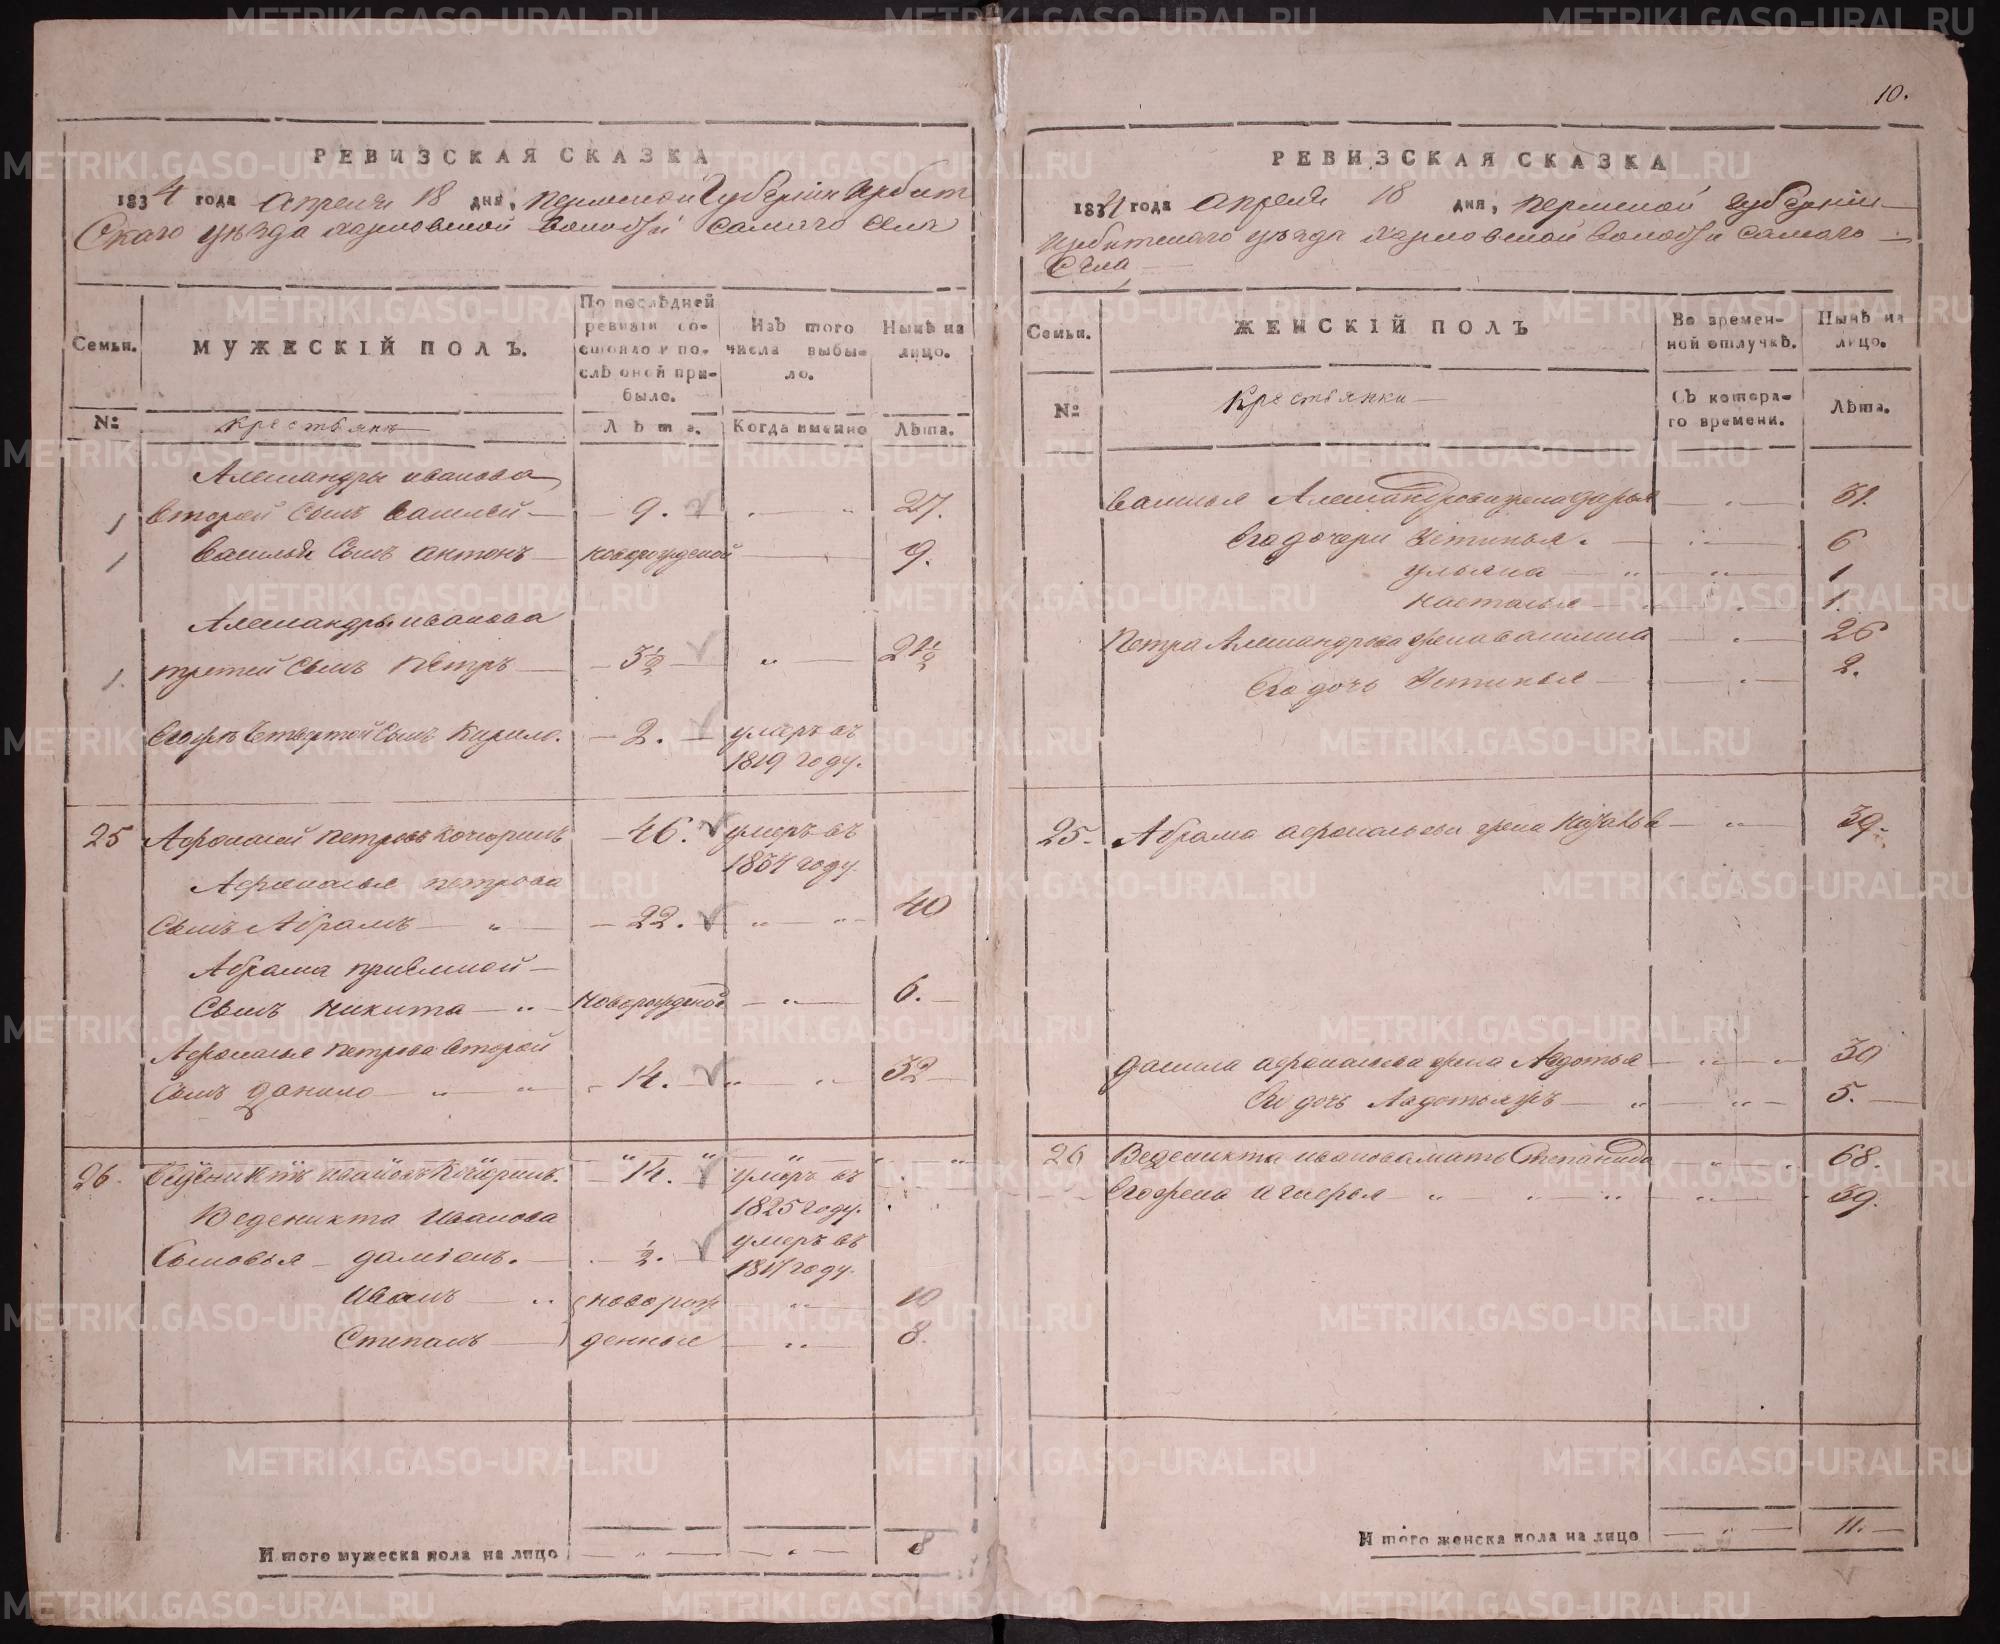 10.
РЕВИЗСКАЯ СКАЗКА
1834 года апреля 18 дня, Пермской Губернии Ирбит
Скаго уезда Харловской волости самаго села
Семьи.
МУЖЕСКІЙ ПОЛЪ.
По послѣдней
ревизіи со-
стояло и по-
слѣ оной при-
было.
Изъ того
числа выбы-
ло.
Нынѣ на
лицо.
№
Крестьянъ
Лѣта.
Когда именно
Лѣта.
Александры иванова
1 второй Сынъ василей 9. 27.
1 василья Сынъ антонъ новорожденой 9.
Александры иванова
1. третей Сынъ Петръ 3½ 21½
Егоже Четвертой Сынъ Кирило. 2. умеръ въ
1819 году.
25 Афонасей петровъ 46. умеръ въ
1834 году.
Афонасья петрова
Сынъ Абрамъ 22. 40
Абрама приемной
Сынъ никита новорожденой 6.
Афонасья петрова второй
Сынъ Данило 14. 32
26. ивановъ 14. умеръ въ
1825 году.
Веденикта Иванова
Сыновья ½. умеръ въ
1817 году.
Иванъ новорож 10
Степанъ денные 8.
Итого мужеска пола на лицо 8
РЕВИЗСКАЯ СКАЗКА
1834 года апреля 18 дня, пермской губернии
ирбитского уезда Харловской волости самаго
Села
Семьи.
ЖЕНСКІЙ ПОЛЪ
Во времен-
ной отлучкѣ.
Нынѣ на
лицо.
№
Крестьянки
Съ котора-
го времени.
Лѣта.
василья Александрова жена дарья 31.
Его дочери Устинья. 6
ульяна 1
настасья 1.
Петра Александрова жена василиса 26
Его дочь Устинья 2.
25. Абрама афонасьева жена 39.
данила афонасьева жена Авдотья 30
Его дочь Авдотья жъ 5.
26 Веденикта иванова мать Степанида 68.
Его жена 39.
Итого женска пола на лицо 11.
METRIKI.GASO-URAL.RU